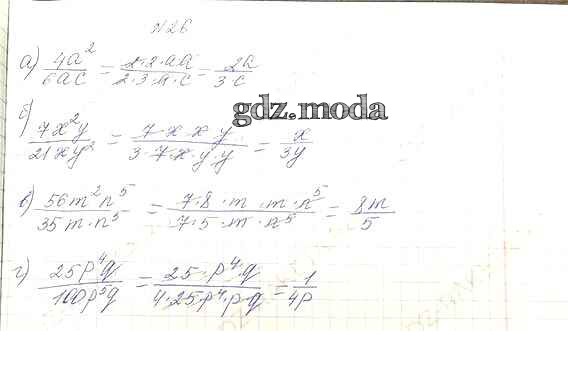 N26
а) 4a²/6ac = 2·2·a·a/2·3·a·c = 2a/3c
gdz.moda
б) 7x²y/21xy² = 7·x·x·y/3·7·x·y·y = x/3y
в) 56m²n⁵/35m·n⁵ = 7·8·m·m·n⁵/7·5·m·n⁵ = 8m/5
г) 25p⁴q/100p⁵q = 25·p⁴·q/4·25·p⁴·p·q = 1/4p